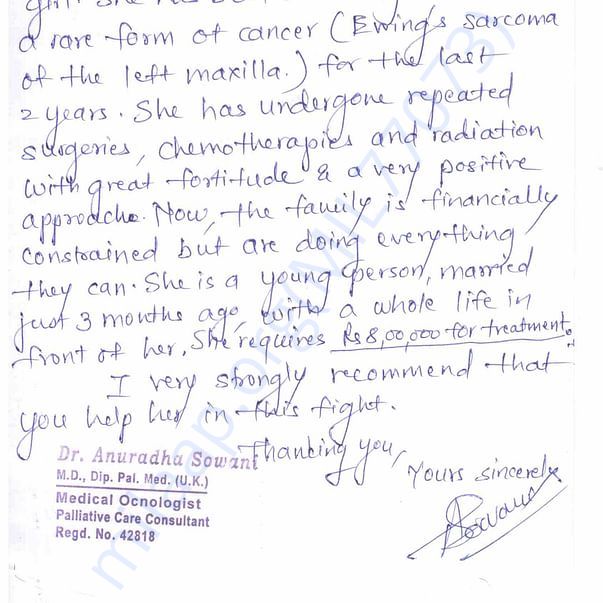 a rare form of cancer (Ewing's sarcoma
of the left maxilla.) for the last
2 years. She has undergone repeated
surgeries, chemotherapies and radiation
with great fortitude & a very positive
approache. Now, the family is financially
constrained but are doing everything
they can. She is a young person, married
just 3 months ago, with a whole life in
front of her. She requires Rs 8,00,000 for treatment.
I very strongly recommend that
you help her in this fight.
Thanking you,
Yours sincerely
Dr. Anuradha Sowani
M.D., Dip. Pal. Med. (U.K.)
Medical Ocnologist
Palliative Care Consultant
Regd. No. 42818